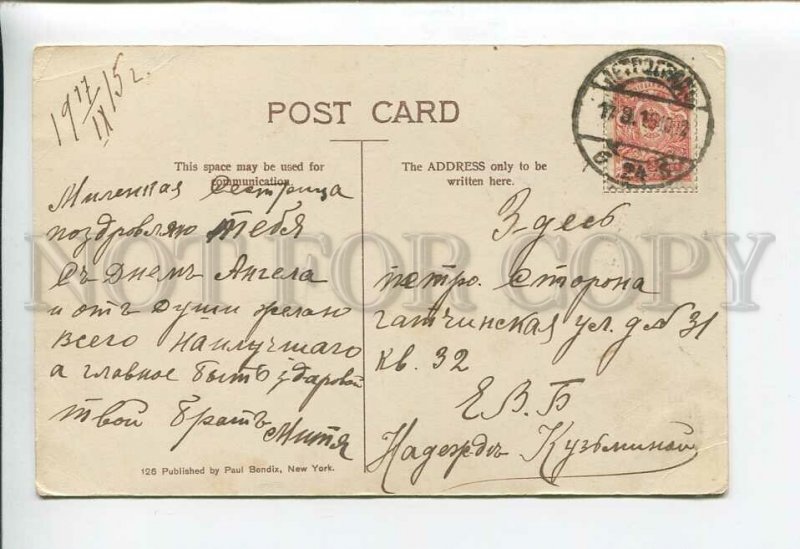 19 17/IX 15 г.
POST CARD
This space may be used for
communication.
The ADDRESS only to be
written here.
ПЕТРОГРАДЪ
17.9.15
24
Миленкая Сестрица
поздровляю Тебя
съ Днемъ Ангела
и отъ души желаю
всего наилучшаго
а главное быть здаровой
твой братъ
Митя
Здесь
петро. сторона
гатчинская ул. д № 31
кв. 32
Е.В.Б
Надеждъ Кузьминой
126 Published by Paul Bendix, New York.
NOT FOR COPY